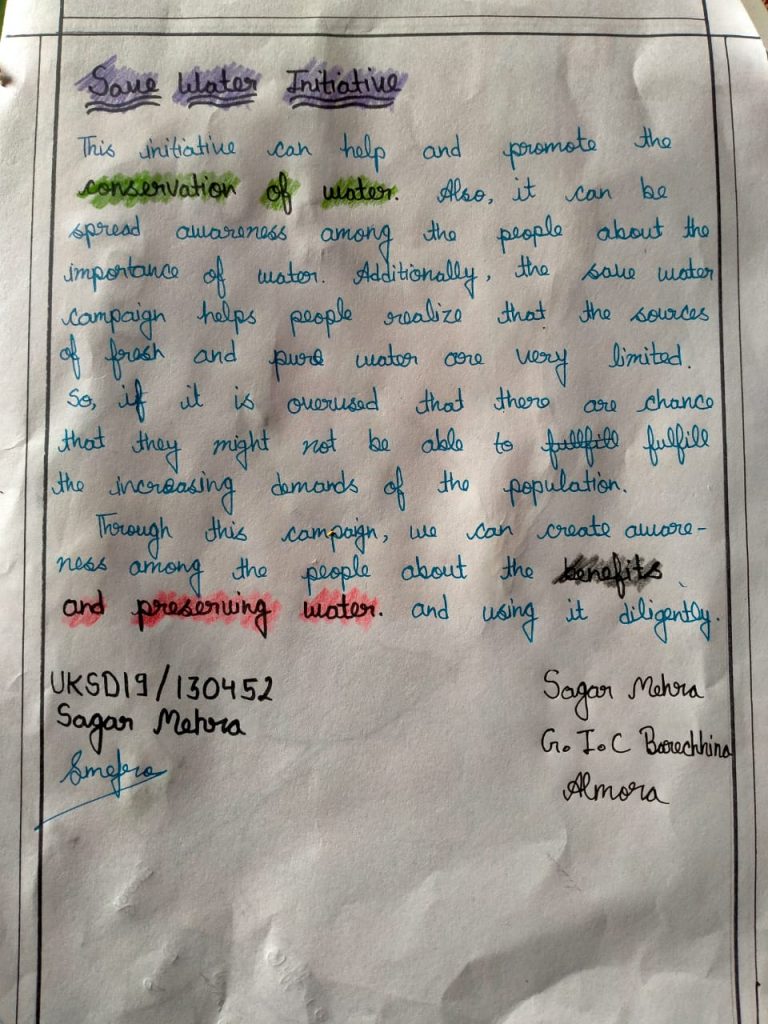 Save Water Initiative
This initiative can help and promote the
conservation of water. Also, it can be
spread awareness among the people about the
importance of water. Additionally, the save water
campaign helps people realize that the sources
of fresh and pure water are very limited.
So, if it is overused that there are chance
that they might not be able to fullfill fulfill
the increasing demands of the population.
Through this campaign, we can create aware-
ness among the people about the benefits
and preserving water. and using it diligently.
UKSD19/130452
Sagar Mehra
Sagar Mehra
G.I.C Barechhina
Almora